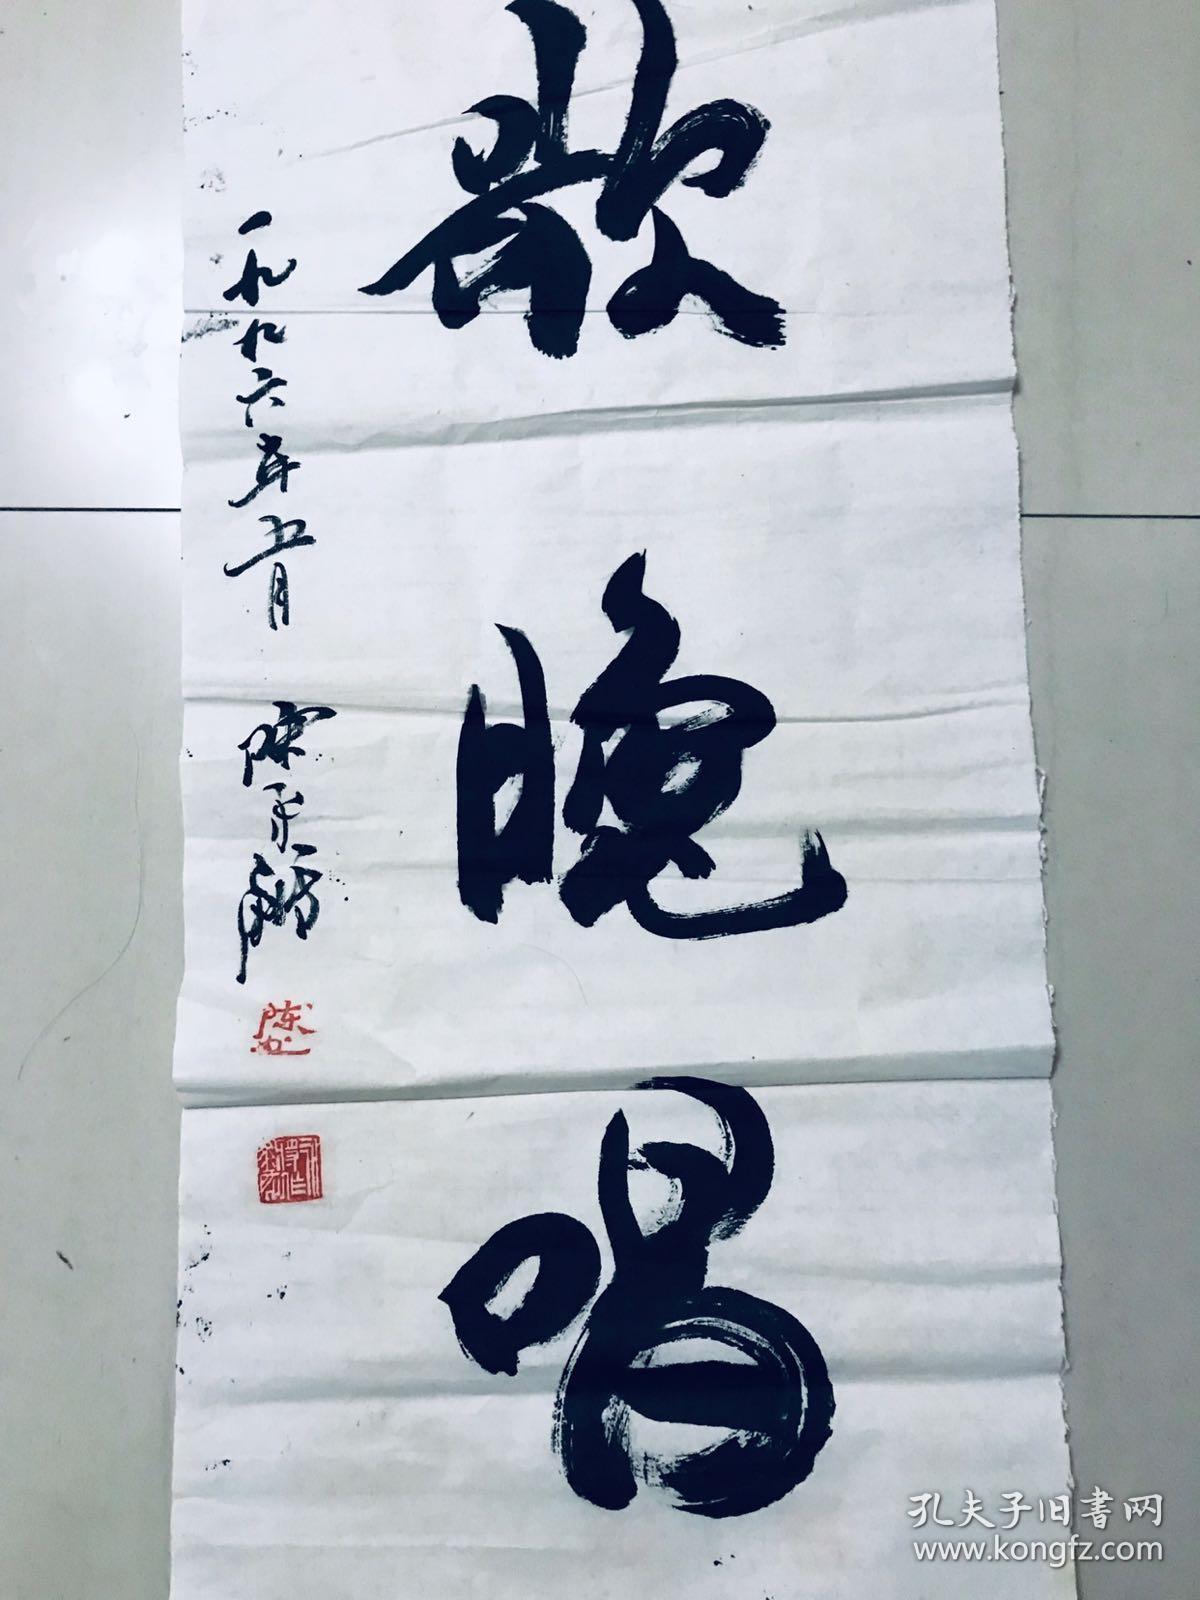 歌晚唱
一九九六年五月 陈
陈
孔夫子旧書网
www.kongfz.com